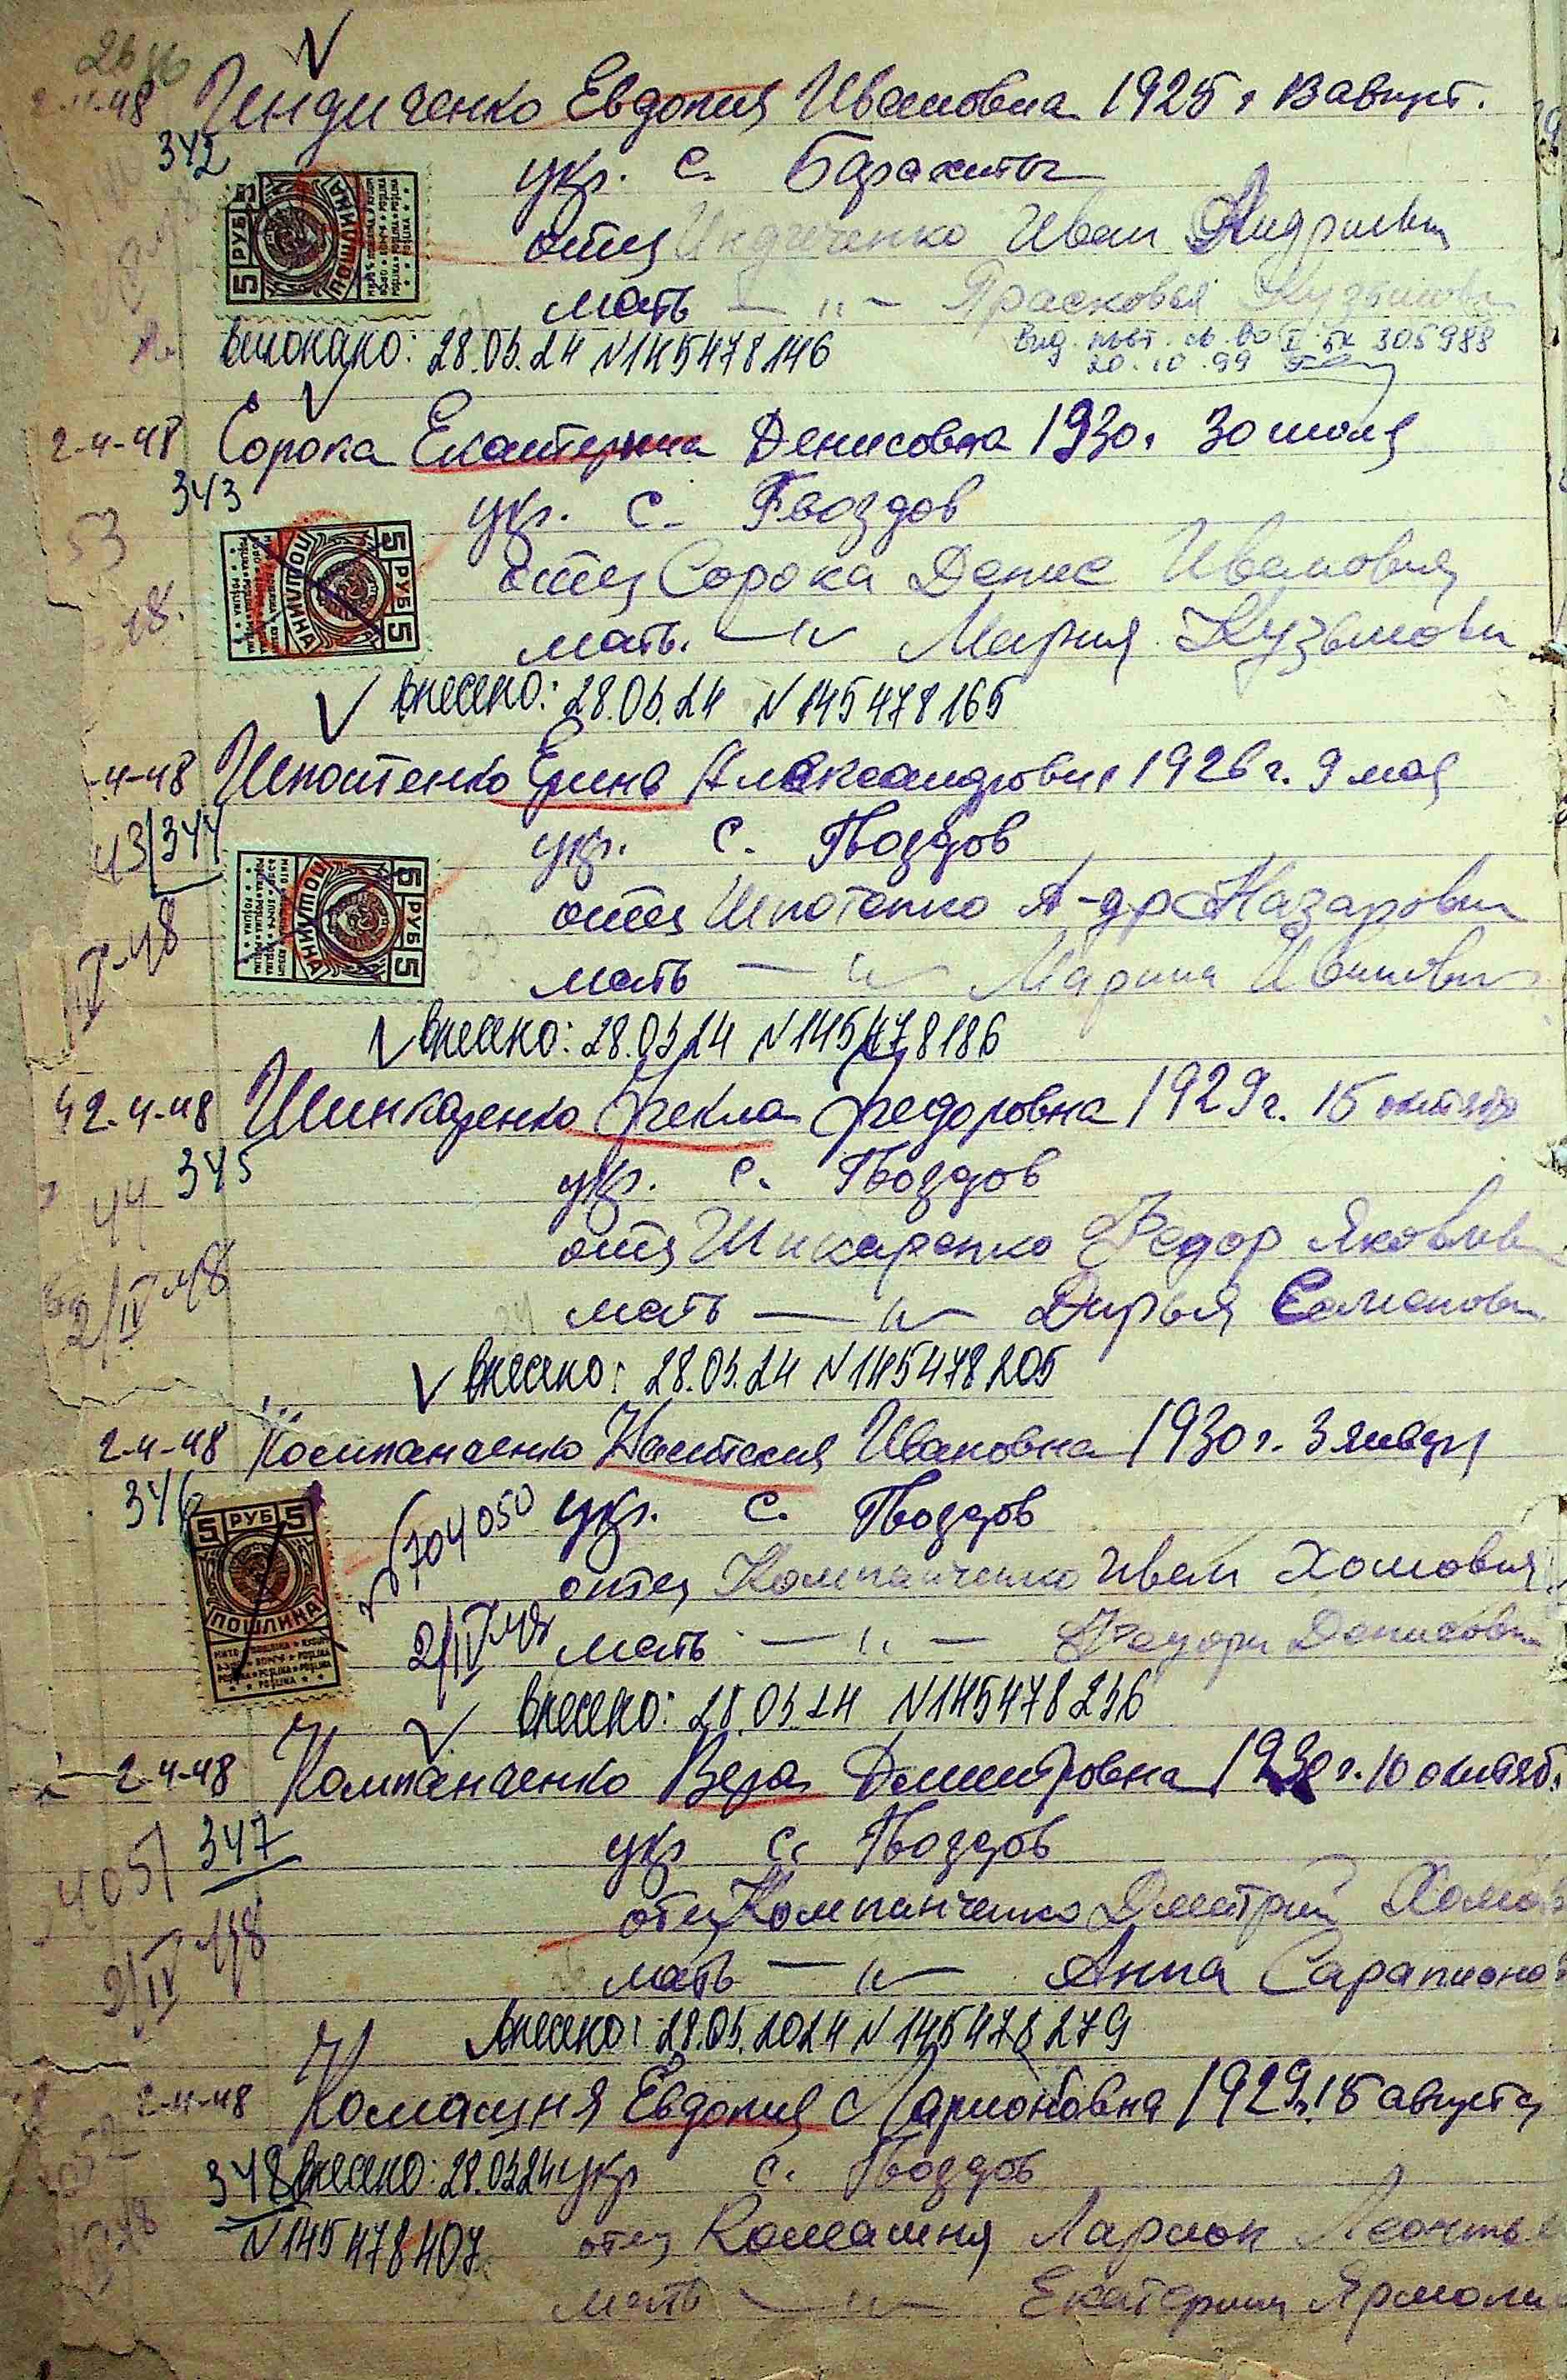 2-4-48 Индиченко Евдокия Ивановна 1925 г 13 август.
342
укр. с. Барахты
5 РУБ 5 ПОШЛИНА
отец Индиченко Иван
мать — " — Прасковья
внесено: 28.03.24 N145478146
Вид. повт. св. во II БК 305988
20.10.99
2-4-48 Сорока Екатерина Денисовна 1930 г 30 июля
343
укр. с. Гвоздов
53
5 РУБ 5 ПОШЛИНА
отец Сорока Денис Иванович
мать. — " — Мария Кузьмовн
внесено: 28.03.24 N145478165
-4-48 Шпотенко Ерина Александровн 1926 г. 9 мая
43/344
укр. с. Гвоздов
5 РУБ 5 ПОШЛИНА
отец Шпотенко А-др Назарович
IV-48
мать — " — Марина Ивановн
внесено: 28.03.24 N145478186
2-4-48 Шинкаренко Фекла Федоровна 1929 г. 15 октября
345
укр. с. Гвоздов
44
отец Шинкаренко Федор Яковлев
2/IV 48
мать — " — Дарья Семеновн
внесено: 28.03.24 N145478205
2-4-48 Компанченко Настасия Ивановна 1930 г. 3 январ
346
704050 укр. с. Гвоздов
5 РУБ 5 ПОШЛИНА
отец Компанченко Иван Хомович
2/IV 48 мать — " — Денисовн
внесено: 28.03.24 N145478236
2-4-48 Компанченко Вера Дмитровна 1930 г. 10 октяб.
347
укр с. Гвоздов
4051
отец Компанченко Дмитрий Хомов
2/IV 48
мать — " — Анна Сарапионов
внесено: 28.03.2024 N145478279
2-4-48 Комашня Евдокия Ларионовна 1929 г. 15 августа
348 внесено: 28.03.24 укр с. Гвоздов
N145478407
отец Комашня Ларион Леонтье
мать — " — Екатерина Ярмола